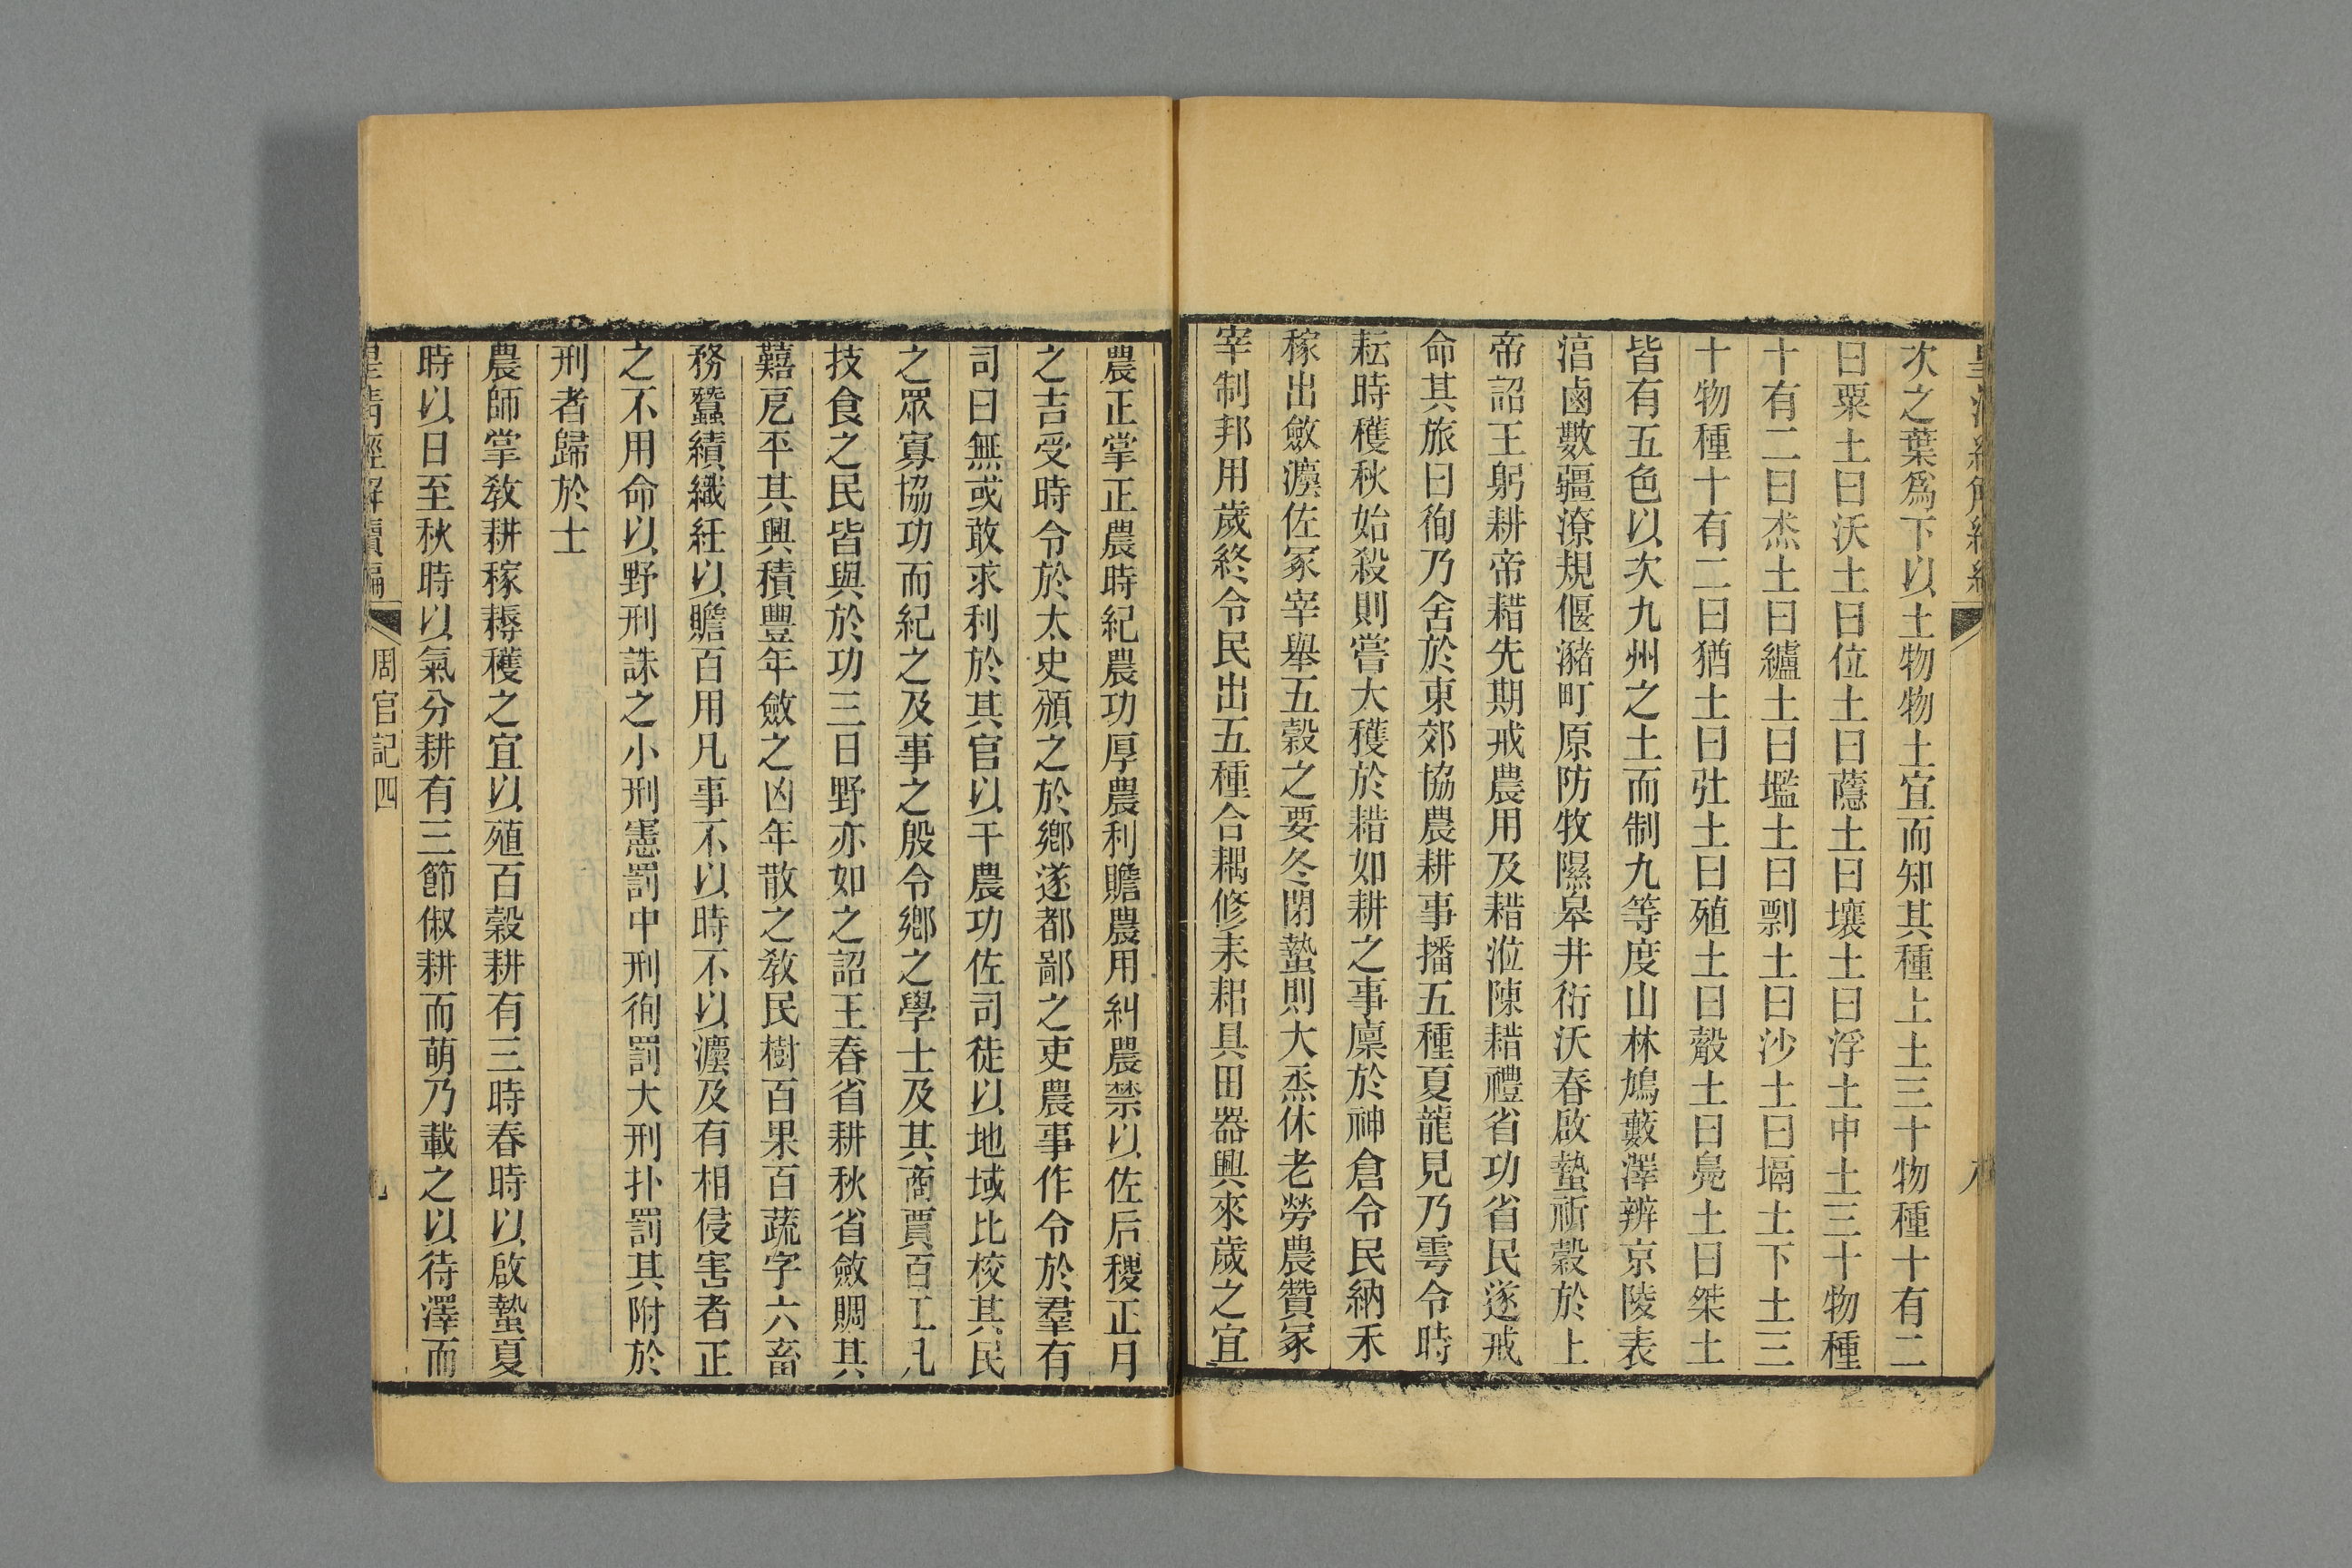 次之葉爲下以土物物土宜而知其種上土三十物種十有二
曰粟土曰沃土曰位土曰蘟土曰壤土曰浮土中土三十物種
十有二曰怸土曰纑土曰壏土曰剽土曰沙土曰塥土下土三
十物種十有二曰猶土曰壯土曰殖土曰觳土曰鳧土曰桀土
皆有五色以次九州之土而制九等度山林鳩藪澤辨京陵表
淳鹵數疆潦規偃瀦町原防牧隰皋井衍沃春啟蟄祈穀於上
帝詔王躬耕帝耤先期戒農用及耤涖陳耤禮省功省民遂戒
命其旅曰徇乃舍於東郊協農耕事播五種夏龍見乃雩令時
耘時穫秋始殺則嘗大穫於耤如耕之事廩於神倉令民納禾
稼出斂灋佐冢宰舉五穀之要冬閉蟄則大烝休老勞農贊冢
宰制邦用歲終令民出五種合耦修耒耜具田器興來歲之宜
農正掌正農時紀農功厚農利贍農用糾農禁以佐后稷正月
之吉受時令於太史頒之於鄉遂都鄙之吏農事作令於羣有
司曰無或敢求利於其官以干農功佐司徒以地域比校其民
之眾寡協功而紀之及事之殷令鄉之學士及其商賈百工凡
技食之民皆與於功三日野亦如之詔王春省耕秋省斂賙其
囏戹平其興積豐年斂之凶年散之敎民樹百果百蔬字六畜
務蠶績纖紝以贍百用凡事不以時不以灋及有相侵害者正
之不用命以野刑誅之小刑憲罰中刑徇罰大刑扑罰其附於
刑者歸於士
農師掌敎耕稼耨穫之宜以殖百穀耕有三時春時以啟蟄夏
時以日至秋時以氣分耕有三節俶耕而萌乃載之以待澤而
皇清經解續編
周官記四
九